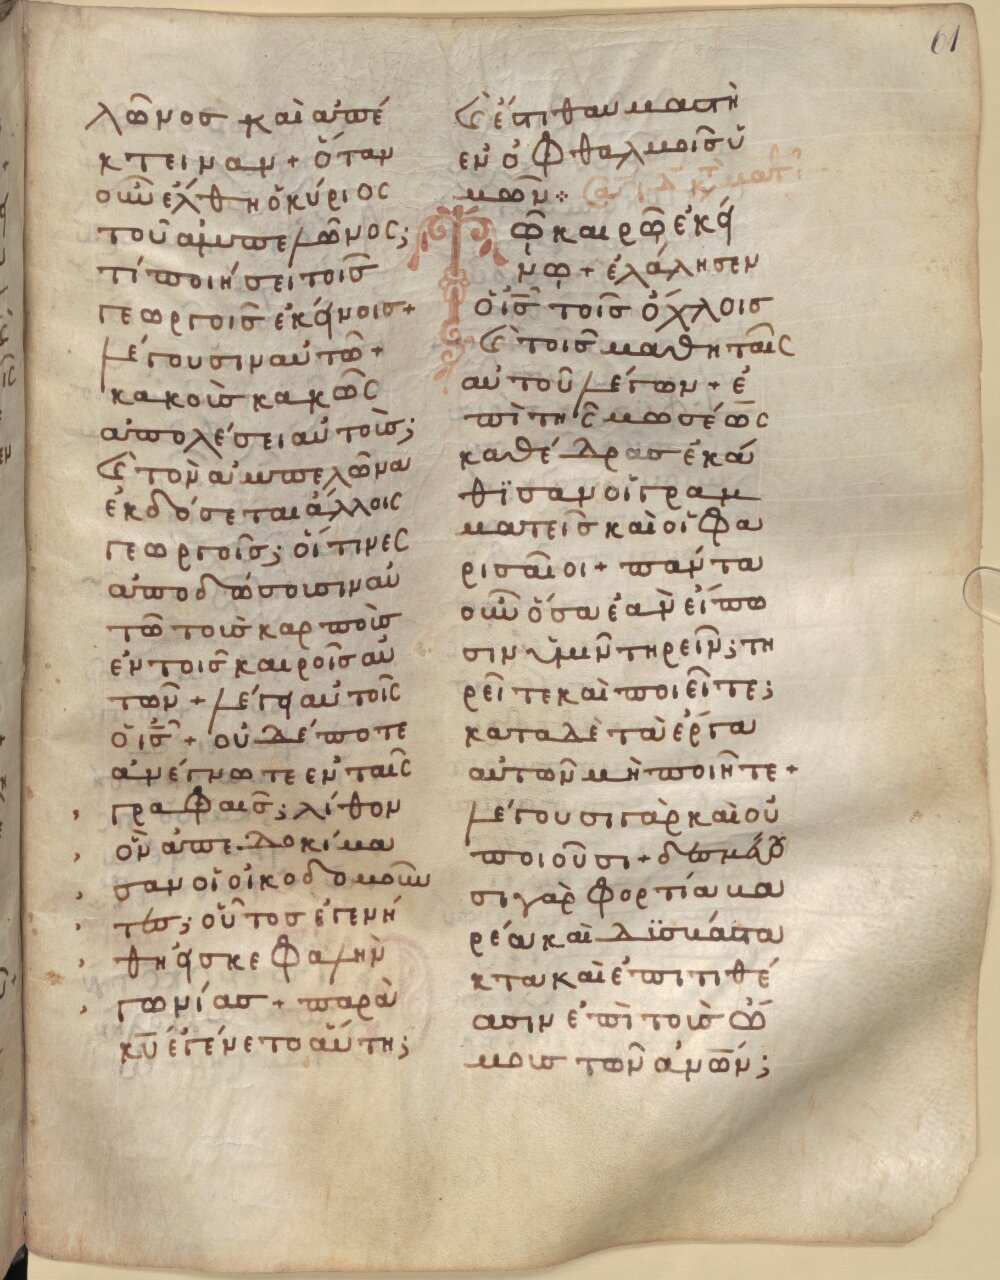 61
λῶνος καὶ ἀπέ
κτειναν + ὅταν
οὖν ἔλθη ὁ κύριος
τοῦ ἀμπελῶνος;
τί ποιήσει τοῖς
γεωργοῖς ἐκείνοις +
λέγουσιν αὐτῶ +
κακοὺς κακῶς
ἀπολέσει αὐτούς;
καὶ τὸν ἀμπελῶνα
ἐκδόσεται ἄλλοις
γεωργοῖς; οἵτινες
ἀποδώσουσιν αὐ
τῶ τοὺς καρποὺς
ἐν τοῖς καιροῖς αὐ
τῶν + λέγει αὐτοῖς
ὁ ις + οὐδέποτε
ἀνέγνωτε ἐν ταῖς
γραφαῖς; λίθον
ὃν ἀπεδοκίμα
σαν οἱ οἰκοδομοῦν
τες; οὗτος ἐγενή
θη εἰς κεφαλὴν
γωνίας + παρὰ
κυ ἐγένετο αὕτη;
καὶ ἔστι θαυμαστὴ
ἐν ὀφθαλμοῖς ὑ
μῶν
Τῶ καιρῶ ἐκεί
νω + ἐλάλησεν
ὁ ις τοῖς ὄχλοις
καὶ τοῖς μαθηταῖς
αὐτοῦ λέγων + ἐ
πὶ τῆς μωσέως
καθέδρας ἐκά
θϊσαν οἱ γραμ
ματεῖς καὶ οἱ φα
ρισαῖοι + πάντα
οὖν ὅσα ἐὰν εἴπω
σιν ὑμῖν τηρεῖν; τη
ρεῖτε καὶ ποιεῖτε;
κατα δὲ τὰ ἔργα
αὐτῶν μὴ ποιῆτε +
λέγουσι γὰρ καὶ οὐ
ποιοῦσι + δεσμεύου
σι γὰρ φορτία βα
ρέα καὶ δϊσβάστα
κτα καὶ ἐπιτιθέ
ασιν ἐπὶ τοὺς ὤ
μους τῶν ανων;